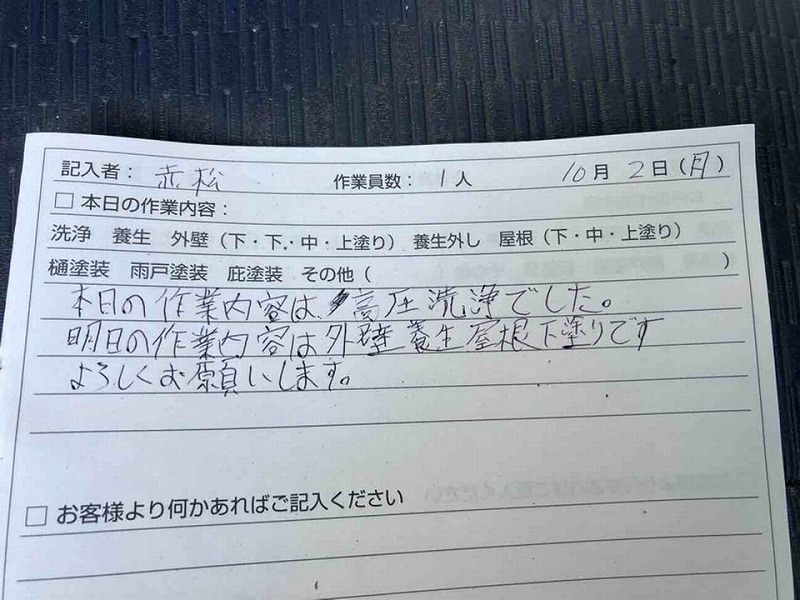 記入者： 赤松 作業員数： 1人 10月 2日（月）
□ 本日の作業内容：
洗浄 養生 外壁（下・下.・中・上塗り） 養生外し 屋根（下・中・上塗り）
樋塗装 雨戸塗装 庇塗装 その他（ ）
本日の作業内容は、高圧洗浄でした。
明日の作業内容は外壁養生屋根下塗りです
よろしくお願いします。
□ お客様より何かあればご記入ください